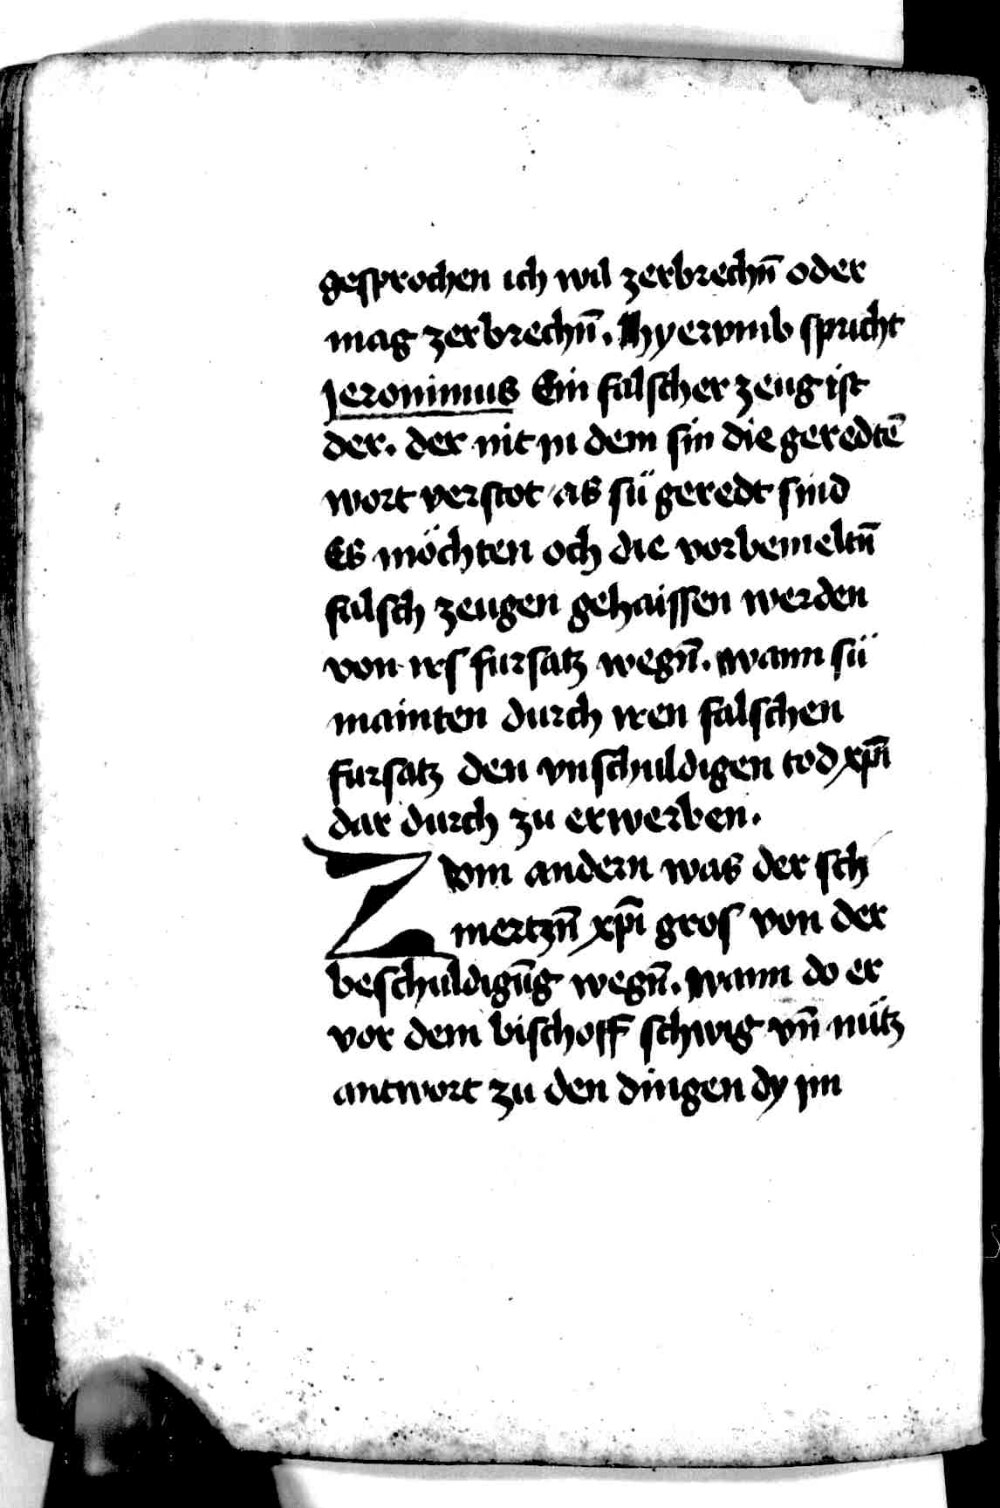 gesprochen ich wil zerbrechn̄ oder
mag zerbrechn̄. Hyervmb spricht
Jeronimus Ein falscher zeug ist
der. der nit jn dem sin die geredtē
wort verstot as sü geredt sind
Es möchten och die vorbemeltn̄
falsch zeugen gehaissen werden
von irs fursatz wegn̄. wann sü
mainten durch iren falschen
fursatz den vnschuldigen tod xp̄i
dar durch zu erwerben.
Zvm andern was der sch
mertzn̄ xp̄i gros von der
beschuldigūg wegn̄. wann do er
vor dem bischoff schwig vn̄ nütz
antwort zu den dingen dy jm